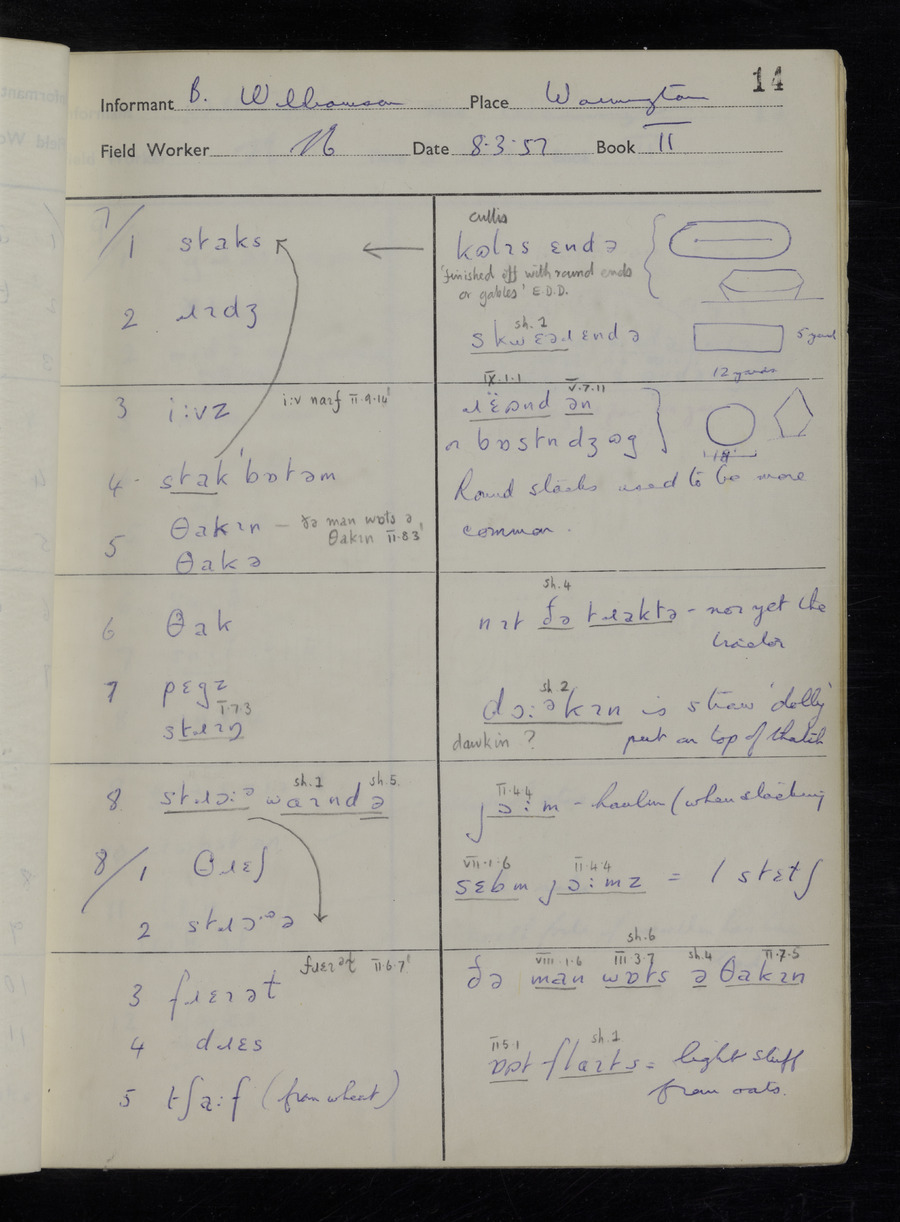 14
Informant B. Williamson Place Warrington
Field Worker Date 8.3.57 Book II
7/1 staks
2 ɹɪdʒ
cullis
kʊlɪs ɛndə
'finished off with round ends
or gables' E.D.D.
sh.1
skwɛəɹ ɛndə
5 yard
12 yards
3 i:vz
i:v narf II.9.14'
4 stak'bɒtəm
5 θakɪn – ðə man wɒts ə
θakɪn II.8.3'
θakə
IX.1.1 V.7.11
ən
18'
Round stacks used to be more
common.
6 θak
7 pɛgz
I.7.3
stɹɪŋ
sh.4
nɪt ðə tɹaktə – nor yet the
tractor
sh.2
dɔ:əkɪn is straw 'dolly'
dawkin? put on top of thatch
8 stɹɔ:ə waɪndə
sh.1 sh.5
8/1 θɹɛʃ
2 stɹɔ:əə
II.4.4
jɔ:m – haulm (when stacking
VII.1.6 II.4.4
sɛbm jɔ:mz = 1 stɛtʃ
3 fɹɛɪət
fɹɛɪət II.6.7'
4 dɹɛs
5 tʃa:f (from wheat)
sh.6
VIII.1.6 III.3.7 sh.4 II.7.5
ðə man wɒts ə θakɪn
II.5.1 sh.1
flaɪts = light stuff
from oats.